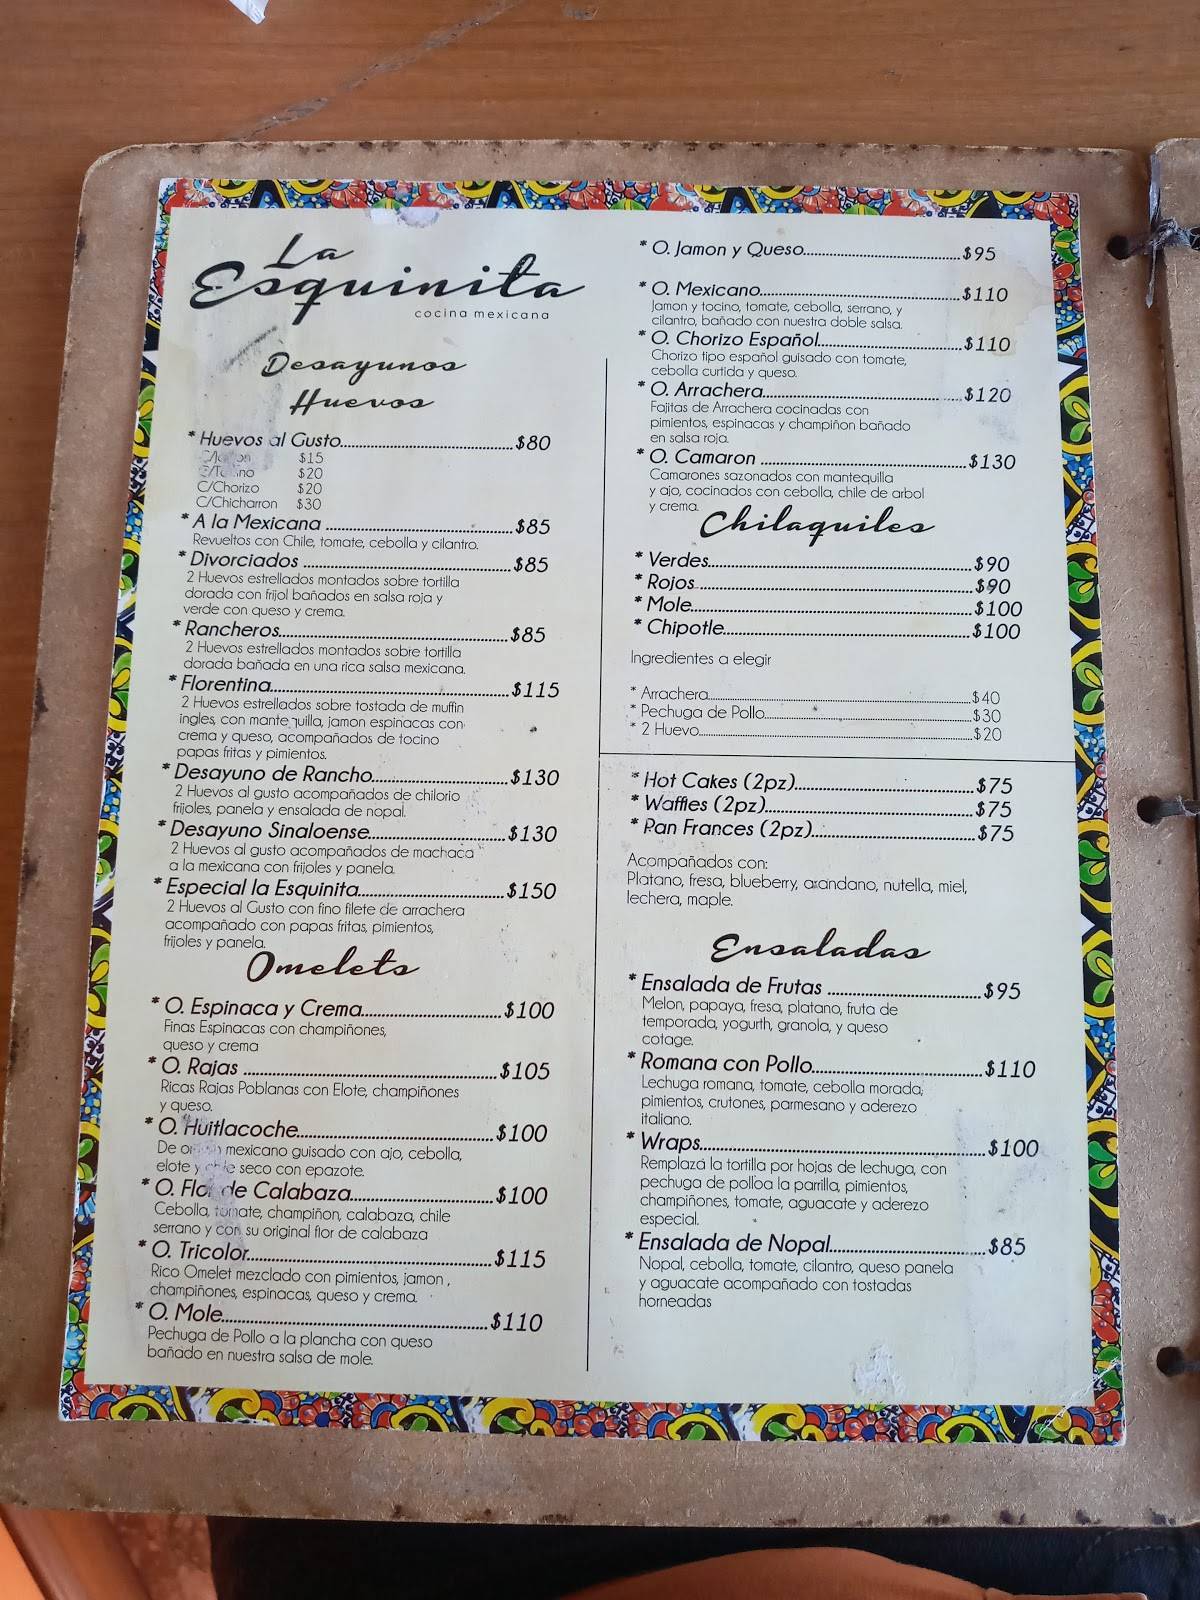 La
Esquinita
cocina mexicana
Desayunos
Huevos
* Huevos al Gusto....................$80
$15
$20
C/Chorizo $20
C/Chicharron $30
* A la Mexicana ....................$85
Revueltos con Chile, tomate, cebolla y cilantro.
* Divorciados ....................$85
2 Huevos estrellados montados sobre tortilla
dorada con frijol bañados en salsa roja y
verde con queso y crema.
* Rancheros....................$85
2 Huevos estrellados montados sobre tortilla
dorada bañada en una rica salsa mexicana.
* Florentina....................$115
2 Huevos estrellados sobre tostada de muffin
ingles, con mantequilla, jamon espinacas con
crema y queso, acompañados de tocino
papas fritas y pimientos.
* Desayuno de Rancho....................$130
2 Huevos al gusto acompañados de chilorio
frijoles, panela y ensalada de nopal.
* Desayuno Sinaloense....................$130
2 Huevos al gusto acompañados de machaca
a la mexicana con frijoles y panela.
* Especial la Esquinita....................$150
2 Huevos al Gusto con fino filete de arrachera
acompañado con papas fritas, pimientos,
frijoles y panela.
Omelets
* O. Espinaca y Crema....................$100
Finas Espinacas con champiñones,
queso y crema
* O. Rajas ....................$105
Ricas Rajas Poblanas con Elote, champiñones
y queso.
* O. Huitlacoche....................$100
De mexicano guisado con ajo, cebolla,
elote y seco con epazote.
* O. Flor de Calabaza....................$100
Cebolla, tomate, champiñon, calabaza, chile
serrano y con su original flor de calabaza
* O. Tricolor....................$115
Rico Omelet mezclado con pimientos, jamon ,
champiñones, espinacas, queso y crema.
* O. Mole....................$110
Pechuga de Pollo a la plancha con queso
bañado en nuestra salsa de mole.
* O. Jamon y Queso....................$95
* O. Mexicano....................$110
Jamon y tocino, tomate, cebolla, serrano, y
cilantro, bañado con nuestra doble salsa.
* O. Chorizo Español....................$110
Chorizo tipo español guisado con tomate,
cebolla curtida y queso.
* O. Arrachera....................$120
Fajitas de Arrachera cocinadas con
pimientos, espinacas y champiñon bañado
en salsa roja.
* O. Camaron ....................$130
Camarones sazonados con mantequilla
y ajo, cocinados con cebolla, chile de arbol
y crema.
Chilaquiles
* Verdes....................$90
* Rojos....................$90
* Mole....................$100
* Chipotle....................$100
Ingredientes a elegir
* Arrachera....................$40
* Pechuga de Pollo....................$30
* 2 Huevo....................$20
* Hot Cakes (2pz)....................$75
* Waffles (2pz)....................$75
* Pan Frances (2pz)....................$75
Acompañados con:
Platano, fresa, blueberry, arandano, nutella, miel,
lechera, maple.
Ensaladas
* Ensalada de Frutas ....................$95
Melon, papaya, fresa, platano, fruta de
temporada, yogurth, granola, y queso
cotage.
* Romana con Pollo....................$110
Lechuga romana, tomate, cebolla morada,
pimientos, crutones, parmesano y aderezo
italiano.
* Wraps....................$100
Remplazá la tortilla por hojas de lechuga, con
pechuga de polloa la parrilla, pimientos,
champiñones, tomate, aguacate y aderezo
especial.
* Ensalada de Nopal....................$85
Nopal, cebolla, tomate, cilantro, queso panela
y aguacate acompañado con tostadas
horneadas